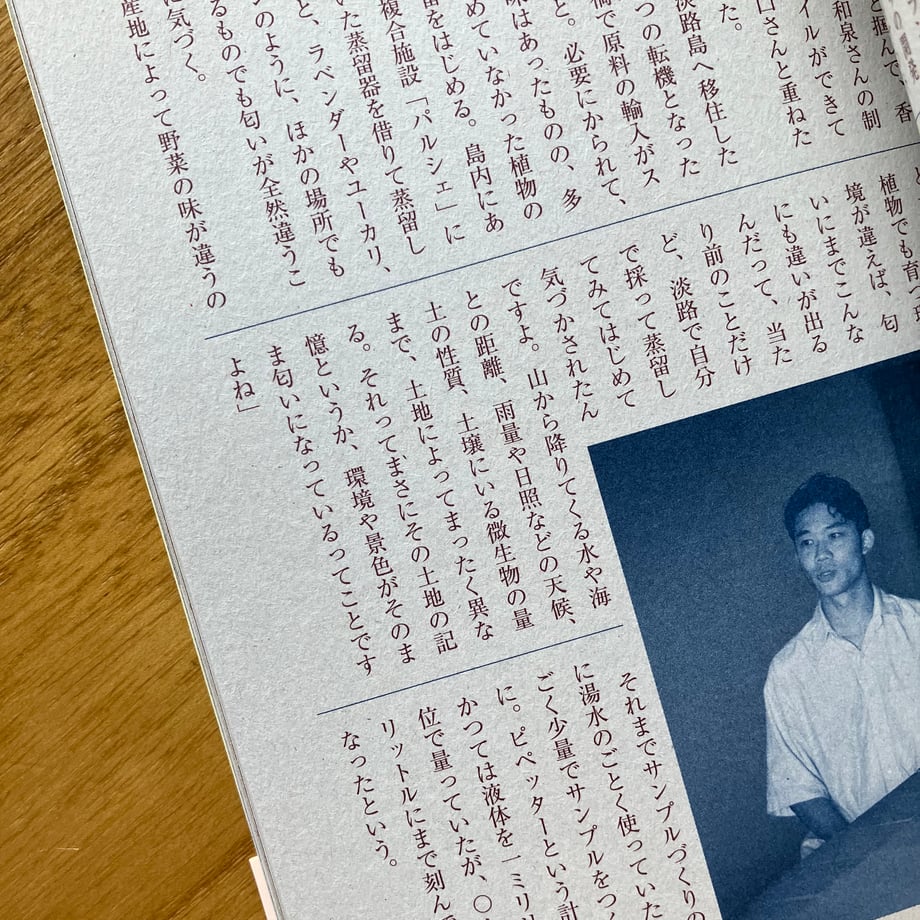 と掴んで、香
和泉さんの制
イルができて
口さんと重ねた
た。
淡路島へ移住した
つの転機となった
で原料の輸入がス
と。必要にかられて、
味はあったものの、多
めていなかった植物の
留をはじめる。島内にあ
複合施設「パルシェ」に
いた蒸留器を借りて蒸留し
と、ラベンダーやユーカリ、
ンのように、ほかの場所でも
るものでも匂いが全然違うこ
に気づく。
産地によって野菜の味が違うの
植物でも育つ環
境が違えば、匂
いにまでこんな
にも違いが出る
んだって、当た
り前のことだけ
ど、淡路で自分
で採って蒸留し
てみてはじめて
気づかされたん
ですよ。山から降りてくる水や海
との距離、雨量や日照などの天候、
土の性質、土壌にいる微生物の量
まで、土地によってまったく異な
る。それってまさにその土地の記
憶というか、環境や景色がそのま
ま匂いになっているってことです
よね」
それまでサンプルづくりの
に湯水のごとく使っていた
ごく少量でサンプルをつく
に。ピペッターという計
かつては液体を一ミリリ
位で量っていたが、〇
リットルにまで刻んで
なったという。